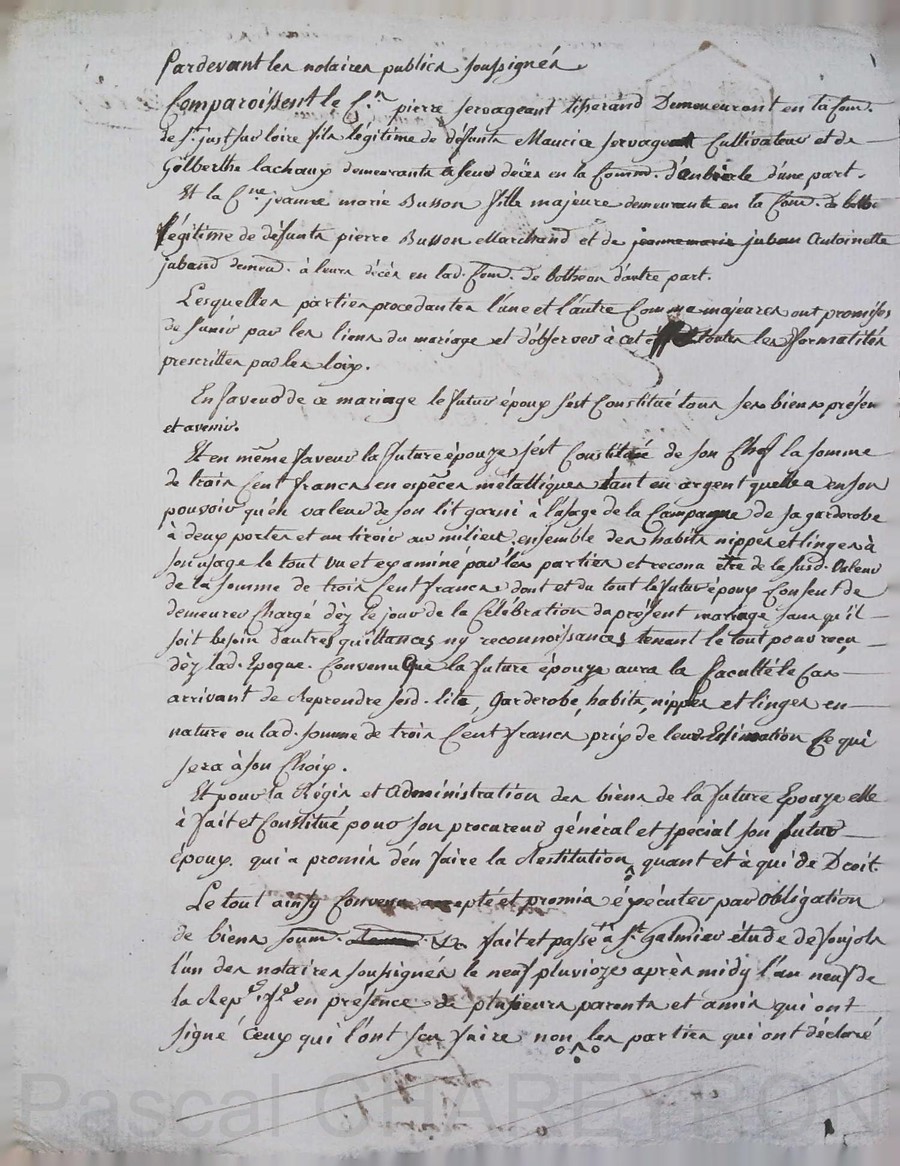 Pardevant les notaires publics soussignés
Comparoissent le C.en pierre servageant tisserand Demeeurant en la Com.
de St. just sur loire fils légitime de défunts Maurice servageant Cultivateur et de
Gilberthe lachaux demeurants à leurs décès en la Comm. d'une part.
Et la C.ne jeanne marie Busson fille majeure demeurante en la Com. de
légitime de défunts pierre Busson Marchand et de jeanne marie juban Antoinette
juband demeu. à leurs décès en lad. Com. de botheon d'autre part.
Lesquelles parties procedantes l'une et l'autre Comme majeures ont promises
de s'unir par les liens du mariage et d'observer à cet toutes les formalités
prescrittes par les loix.
En faveur de ce mariage le futur époux s'est Constitué tous ses biens présen
et avenir.
Et en même faveur la future épouze s'est Constituée de son Chef la somme
de trois Cent francs en espèces métalliques tant en argent quelle a en son
pouvoir qu'en valeur de son lit garni à l'usage de la Campagne de sa garderobe
à deux portes et un tiroir au milieu, ensemble des habits nippes et linges à
son usage le tout vu et examiné par les parties et reconu être de la susd. Valeur
de la somme de trois Cent francs dont et du tout le futur époux Consent de
demeurer Chargé dèz le jour de la Célébration du présent mariage sans qu'il
soit besoin d'autres quittances ny reconnoissances tenant le tout pour reçu
dèz lad. Epoque. Convenu Que la future épouze aura la faculté le Cas
arrivant de Reprendre sesd. lits, Garderobe, habits, nippes et linges en
nature ou lad. somme de trois Cent francs prix de leur Estimation Ce qui
sera à son Choix.
Et pour la Régis et Administration des biens de la future Epouze elle
à fait et Constitué pour son procureur général et spécial son futur
époux qui a promis d'en faire la Restitution quant et à qui de Droit.
Le tout ainsy Convenu accepté et promis éxécuter par Obligation
de biens soum. fait et passé à St. Galmier étude de soujols
l'un des notaires soussignés le neuf pluvioze après midy l'an neuf de
la Rep.e f.se en présence de plusieurs parents et amis qui ont
signé Ceux qui l'ont sçu faire non les parties qui ont déclaré
Pascal CHAREYRON